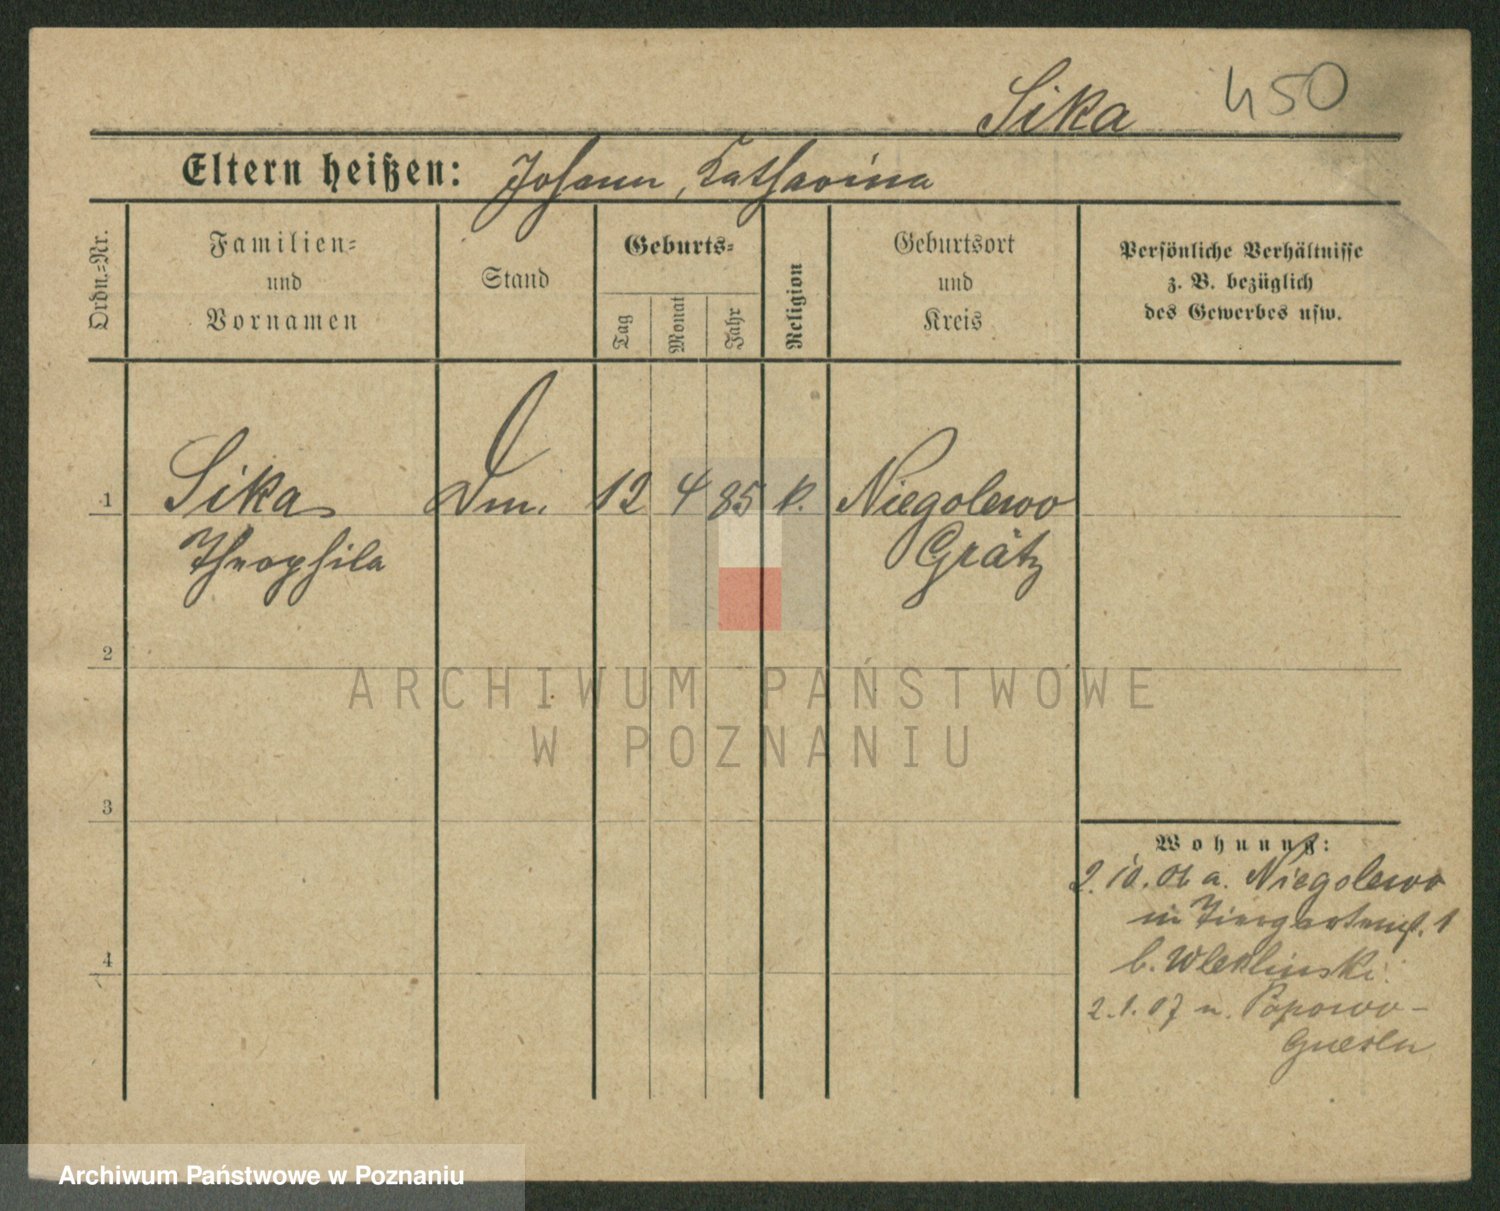 Sika 450
Eltern heißen: Johann, Katharina
Ordn.=Nr.
Familien=
und
Vornamen
Stand
Geburts=
Tag
Monat
Jahr
Religion
Geburtsort
und
Kreis
Persönliche Verhältnisse
z. B. bezüglich
des Gewerbes usw.
1 Sika Dm. 12 4 85 k. Niegolewo
Theophila Grätz
2
3
4
Wohnung:
2.10.06 a. Niegolewo
in Tiergartenst. 1
b. Wleklinski
2.1.07 n. Popowo-
Gnesen
ARCHIWUM PAŃSTWOWE
W POZNANIU
Archiwum Państwowe w Poznaniu